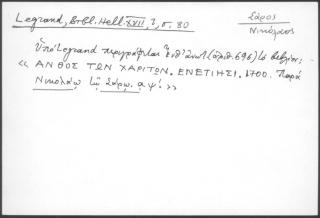 Legrand, Bibl. Hell. XVII, 3, σ. 80
Σάρος
Νικόλαος
Ὑπὸ Legrand περιγράφεται (ἀριθ. 696) τὸ βιβλίον:
« ΑΝΘΟΣ ΤΩΝ ΧΑΡΙΤΩΝ. ΕΝΕΤΙΗΣΙ. 1700. Παρὰ
Νικολάῳ τῷ Σάρῳ. αψʹ. »